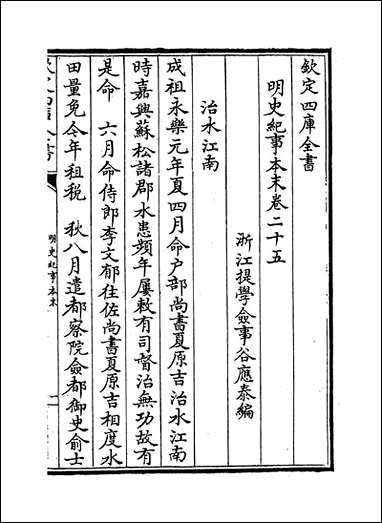 欽定四庫全書
明史紀事本末卷二十五
浙江提學僉事谷應泰編
治水江南
成祖永樂元年夏四月命户部尚書夏原吉治水江南
時嘉興蘇松諸郡水患頻年屢敕有司督治無功故有
是命　六月命侍郎李文郁往佐尚書夏原吉相度水
田量免今年租税　秋八月遣都察院僉都御史俞士
欽定四庫全書
明史紀事本末
一